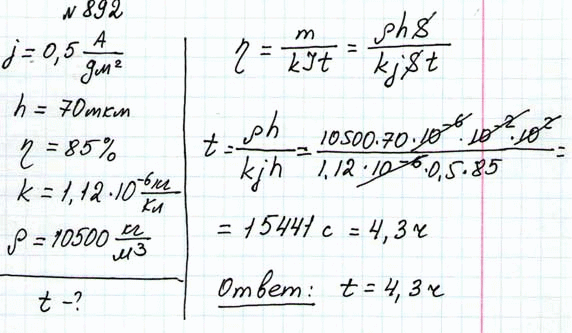 № 892
j = 0,5 А/дм²
h = 70 мкм
η = 85%
k = 1,12·10⁻⁶ кг/Кл
ρ = 10500 кг/м³
t – ?
η = m/kIt = ρhS/kjSt
t = ρh/kjh = 10500·70·10⁻⁶·10⁻²·10²/1,12·10⁻⁶·0,5·85 =
= 15441 с = 4,3 ч
Ответ: t = 4,3 ч